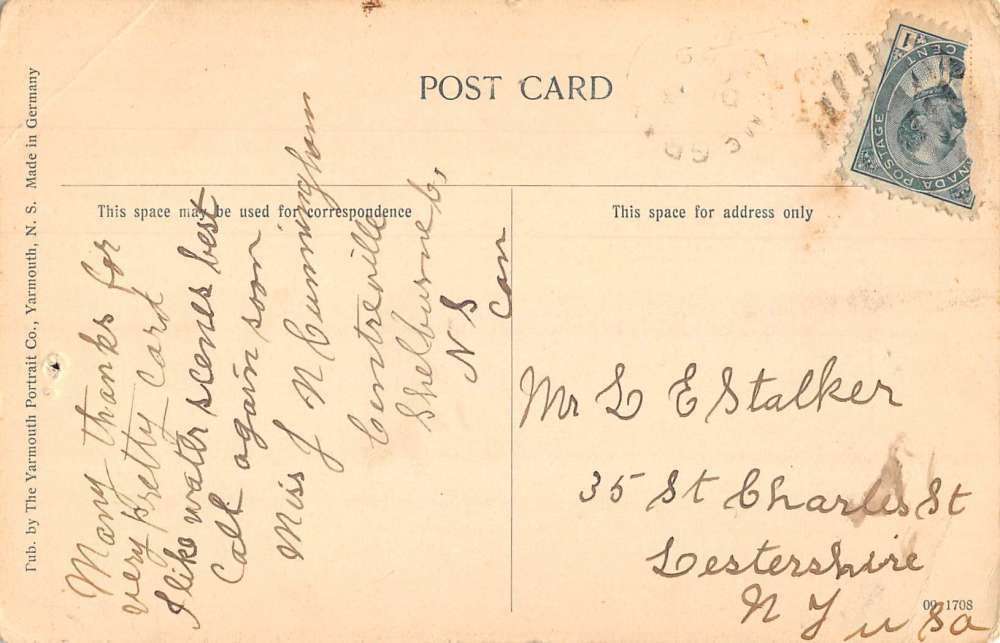 POST CARD
1 CENT
CANADA POSTAGE
This space may be used for correspondence
This space for address only
Many thanks for
very pretty card
I like water scenes best
Call again soon
Miss J N Cunningham
Centreville
Shelburne
N S
Can
Mr L E Stalker
35 St Charles St
Lestershire
N Y U Sa
09 1708
Pub. by The Yarmouth Portrait Co., Yarmouth, N. S. Made in Germany